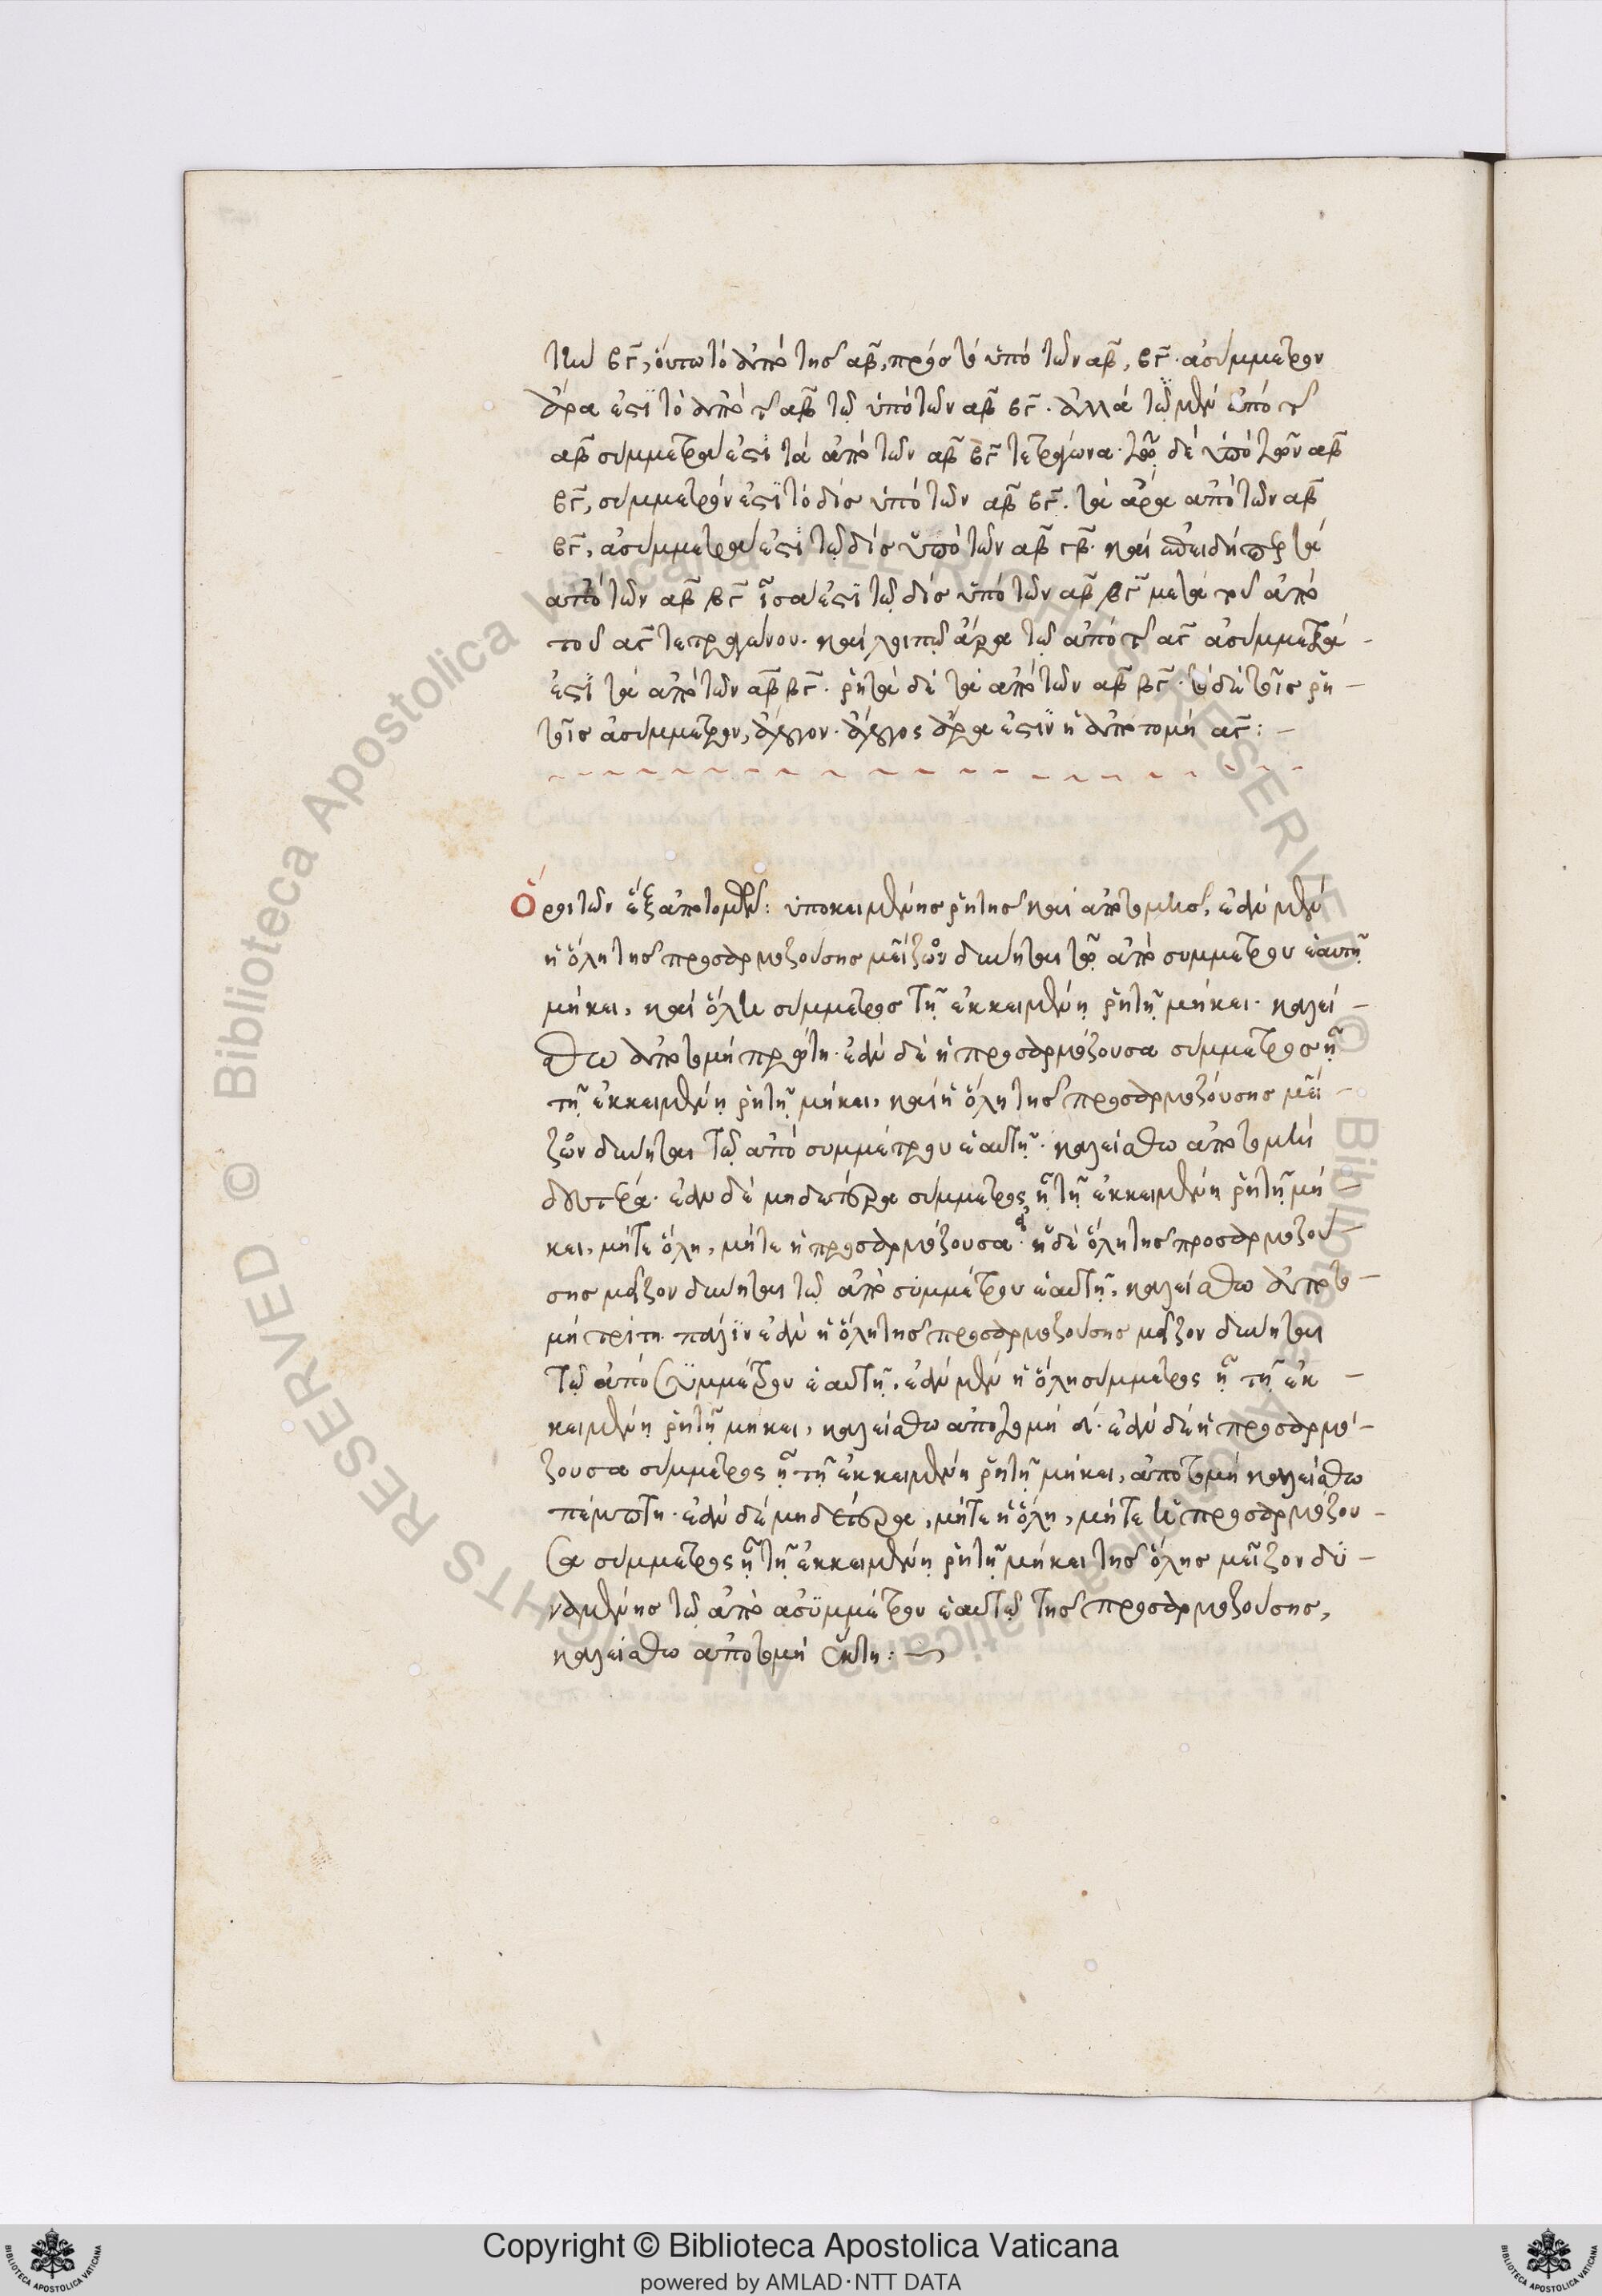 τὴν βγ, οὕτω τὸ ἀπὸ τῆς αβ, πρὸς τὸ ὑπὸ τῶν αβ, βγ. ἀσύμμετρον
ἄρα ἐστὶ τὸ ἀπὸ τῆς αβ τῷ ὑπὸ τῶν αβ βγ. ἀλλὰ τῷ μὲν ἀπὸ τῆς
αβ σύμμετρά ἐστι τὰ ἀπὸ τῶν αβ βγ τετράγωνα. τῷ δὲ ὑπὸ τῶν αβ
βγ, σύμμετρόν ἐστι τὸ δὶς ὑπὸ τῶν αβ βγ. τὰ ἄρα ἀπὸ τῶν αβ
βγ, ἀσύμμετρά ἐστι τῷ δὶς ὑπὸ τῶν αβ γβ. καὶ ἐπειδήπερ τὰ
ἀπὸ τῶν αβ βγ ἴσα ἐστὶ τῷ δὶς ὑπὸ τῶν αβ βγ μετὰ τοῦ ἀπὸ
τοῦ αγ τετραγώνου. καὶ λοιπῷ ἄρα τῷ ἀπὸ τῆς αγ ἀσύμμετρά -
ἐστι τὰ ἀπὸ τῶν αβ βγ. ῥητὰ δὲ τὰ ἀπὸ τῶν αβ βγ. τὸ δὲ τοῖς ῥη -
τοῖς ἀσύμμετρον, ἄλογον. ἄλογος ἄρα ἐστὶν ἡ ἀποτομὴ αγ: -
Ὅροι τῶν ἓξ ἀποτομῶν: ὑποκειμένης ῥητῆς καὶ ἀποτομῆς, ἐὰν μὲν
ἡ ὅλη τῆς προσαρμοζούσης μεῖζον δύνηται τῷ ἀπὸ συμμέτρου ἑαυτῇ
μήκει, καὶ ὅλη σύμμετρος τῇ ἐκκειμένῃ ῥητῇ μήκει. καλεί -
σθω ἀποτομὴ πρώτη. ἐὰν δὲ ἡ προσαρμόζουσα σύμμετρος ᾖ
τῇ ἐκκειμένῃ ῥητῇ μήκει, καὶ ἡ ὅλη τῆς προσαρμοζούσης μεῖ -
ζον δύνηται τῷ ἀπὸ συμμέτρου ἑαυτῇ. καλείσθω ἀποτομὴ
δευτέρα. ἐὰν δὲ μηδετέρα σύμμετρος ᾖ τῇ ἐκκειμένῃ ῥητῇ μή -
κει, μήτε ὅλη, μήτε ἡ προσαρμόζουσα. ἡ δὲ ὅλη τῆς προσαρμοζού -
σης μεῖζον δύνηται τῷ ἀπὸ συμμέτρου ἑαυτῇ, καλείσθω ἀποτο -
μὴ τρίτη. πάλιν ἐὰν ἡ ὅλη τῆς προσαρμοζούσης μεῖζον δύνηται
τῷ ἀπὸ ἀσυμμέτρου ἑαυτῇ, ἐὰν μὲν ἡ ὅλη σύμμετρος ᾖ τῇ ἐκ -
κειμένῃ ῥητῇ μήκει, καλείσθω ἀποτομὴ δ. ἐὰν δὲ ἡ προσαρμό -
ζουσα σύμμετρος ᾖ τῇ ἐκκειμένῃ ῥητῇ μήκει, ἀποτομὴ καλείσθω
πέμπτη. ἐὰν δὲ μηδετέρα, μήτε ἡ ὅλη, μήτε ἡ προσαρμόζου -
σα σύμμετρος ᾖ τῇ ἐκκειμένῃ ῥητῇ μήκει τῆς ὅλης μεῖζον δυ -
ναμένης τῷ ἀπὸ ἀσυμμέτρου ἑαυτῷ τῆς προσαρμοζούσης,
καλείσθω ἀποτομὴ ἕκτη: -
© Biblioteca Apostolica Vaticana ALL RIGHTS RESERVED
© Biblioteca Apostolica Vaticana ALL RIGHTS RESERVED
Copyright © Biblioteca Apostolica Vaticana
powered by AMLAD·NTT DATA
BIBLIOTECA APOSTOLICA VATICANA
BIBLIOTECA APOSTOLICA VATICANA